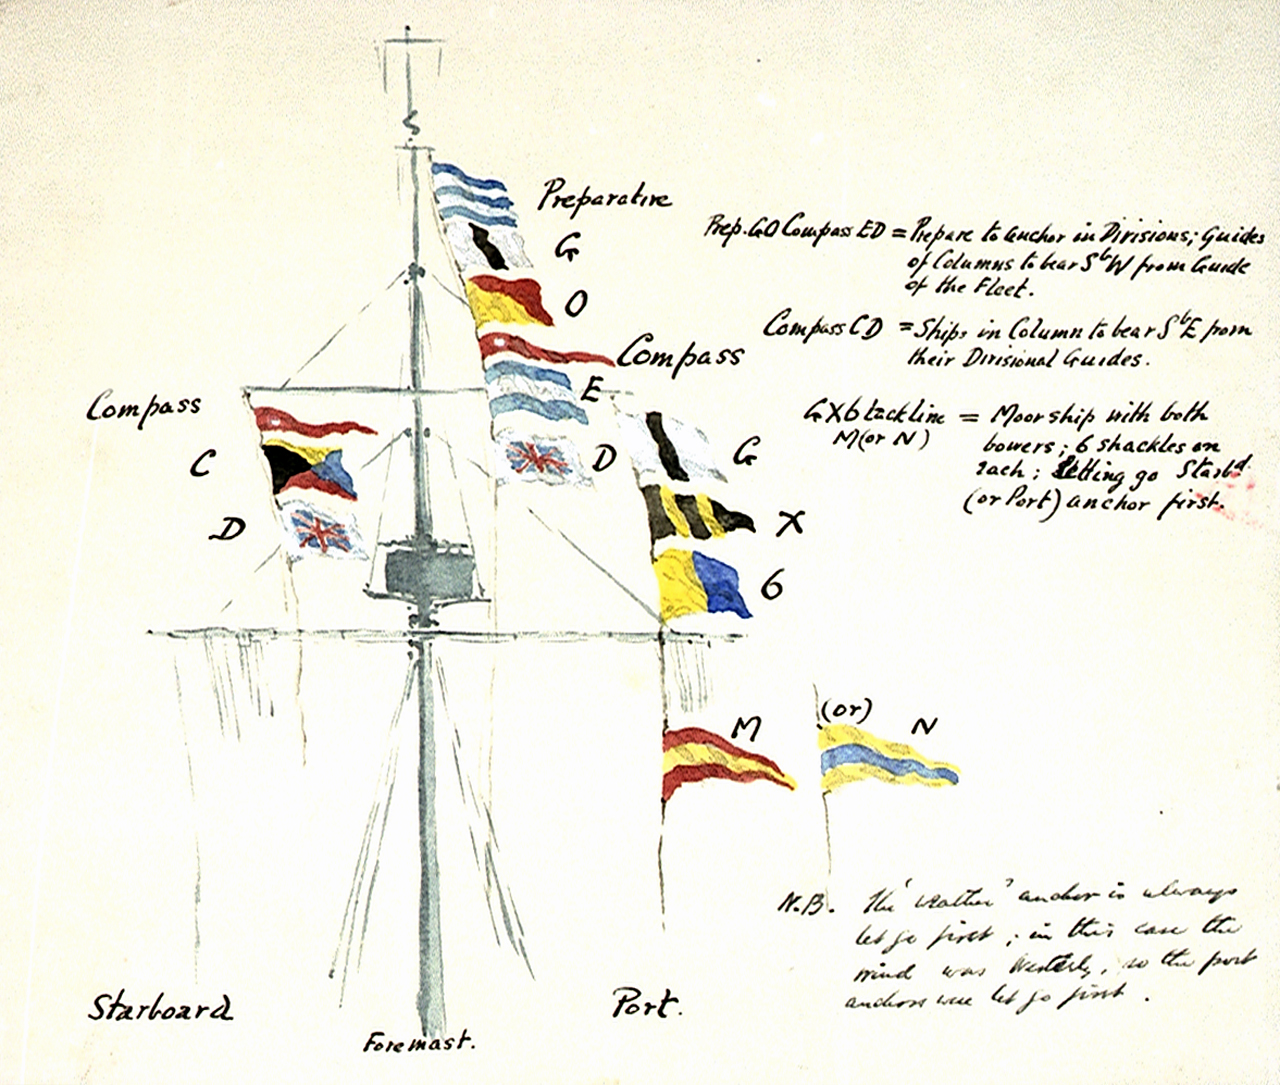 Preparative
G
O
Compass
E
D
Compass
C
D
G
X
6
M
(or)
N
Prep. GO Compass ED = Prepare to anchor in Divisions; Guides
of Columns to bear SbW from Guide
of the Fleet.
Compass CD = Ships in Column to bear SbE from
their Divisional Guides.
GX6 blackline = Moor ship with both
M (or N) bowers; 6 shackles on
each; letting go Starbd.
(or Port) anchor first.
N.B. The "weather" anchor is always
let go first; in this case the
wind was Westerly, so the port
anchors were let go first.
Starboard
Port.
Foremast.